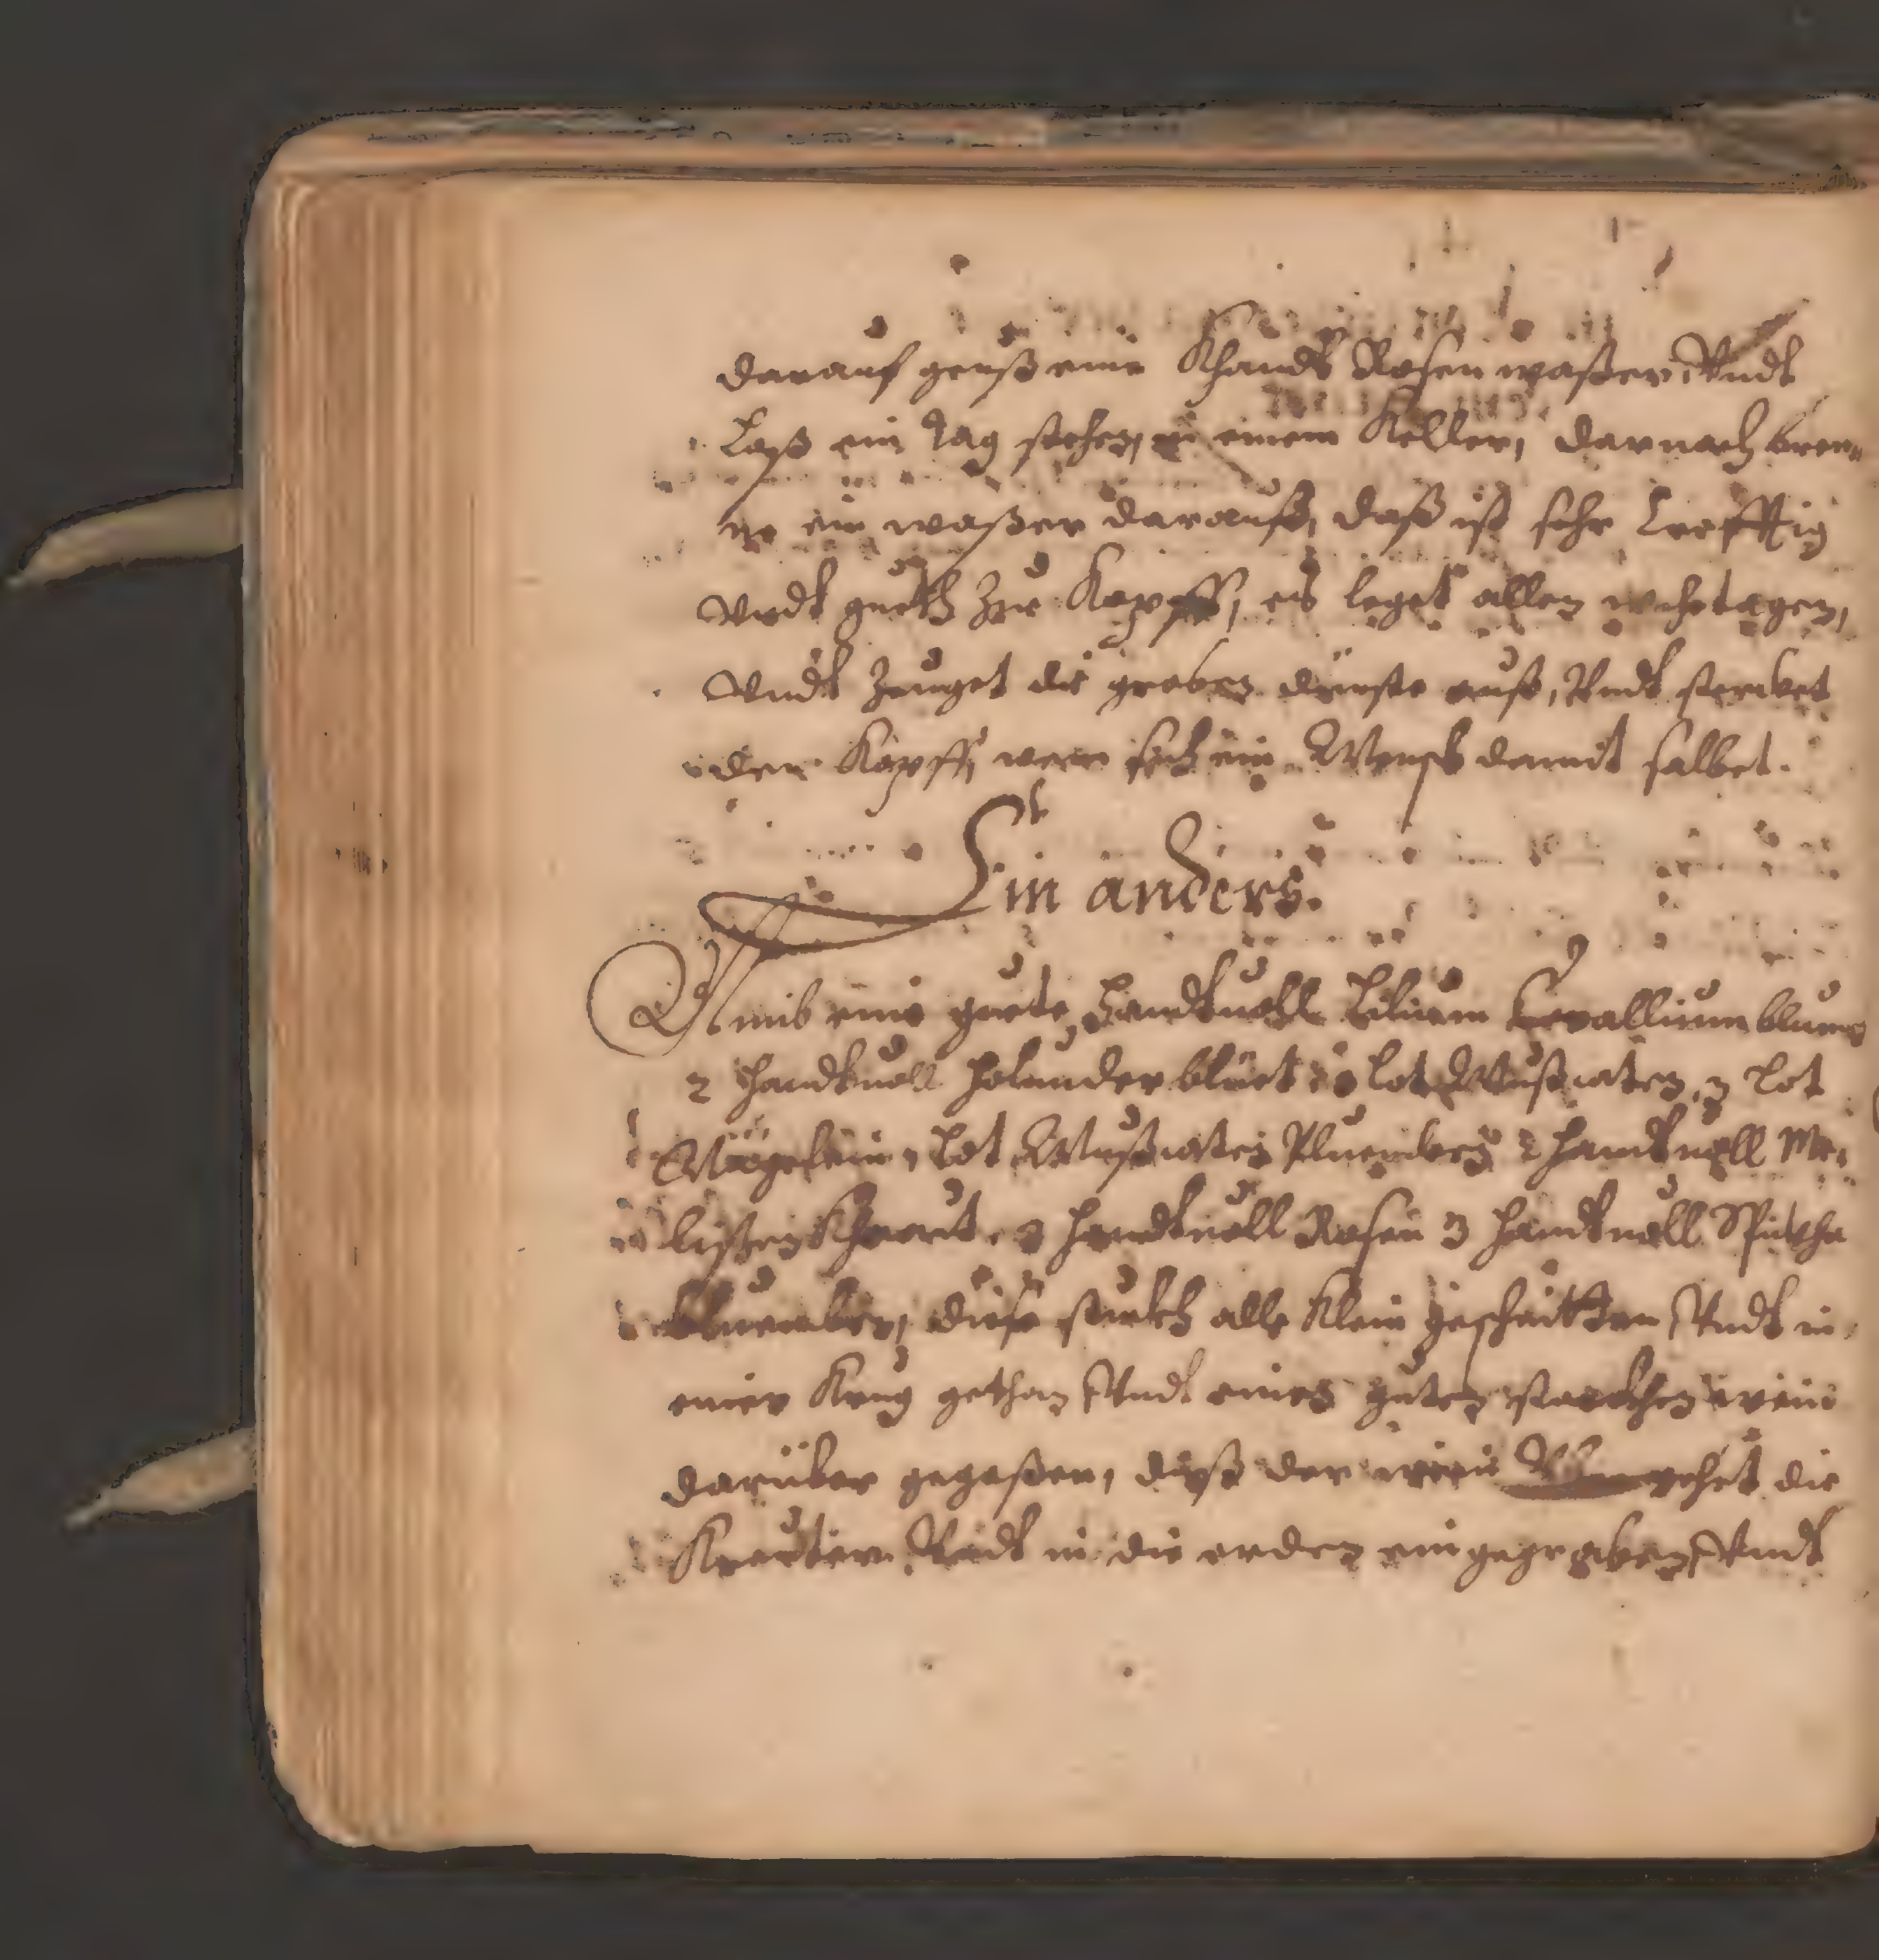 darauf geuß eine Khandt Rosen waßer, Vndt
Laß ein Tag stehen, in einem Keller, darnach bren¬
ne ein waßer darauß, daß ist sehr Crefftig
Vndt gueth zur Kopff, es leget allen wehetagen,
Vndt Zeuget die groben dünste auß, Vndt stercket
den Kopff, wenn sich ein Mensch damit salbet.
Ein anders.
Nimb eine guete Handtuoll Lilium Conuallium blumen
2 Handtuoll Holunderblüet lot Mußcaten, 3 lot
Nägelein, lot Mußcaten Pluemben 2 handtuoll Me¬
lißen Khraut, 3 Handtuoll Rosen 3 Handtuoll Spickha
bluemben, diese stuckh alle Klein geschnitten Vndt in
einen Krug gethan Vndt eines guten starckhen wein
darüber gegoßen, daß der wein gehet die
Kreuter Vndt in die erden eingegraben, Vndt